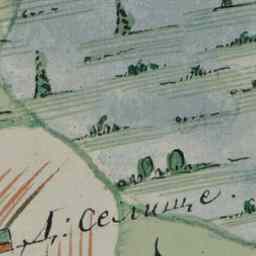 Д: селище.